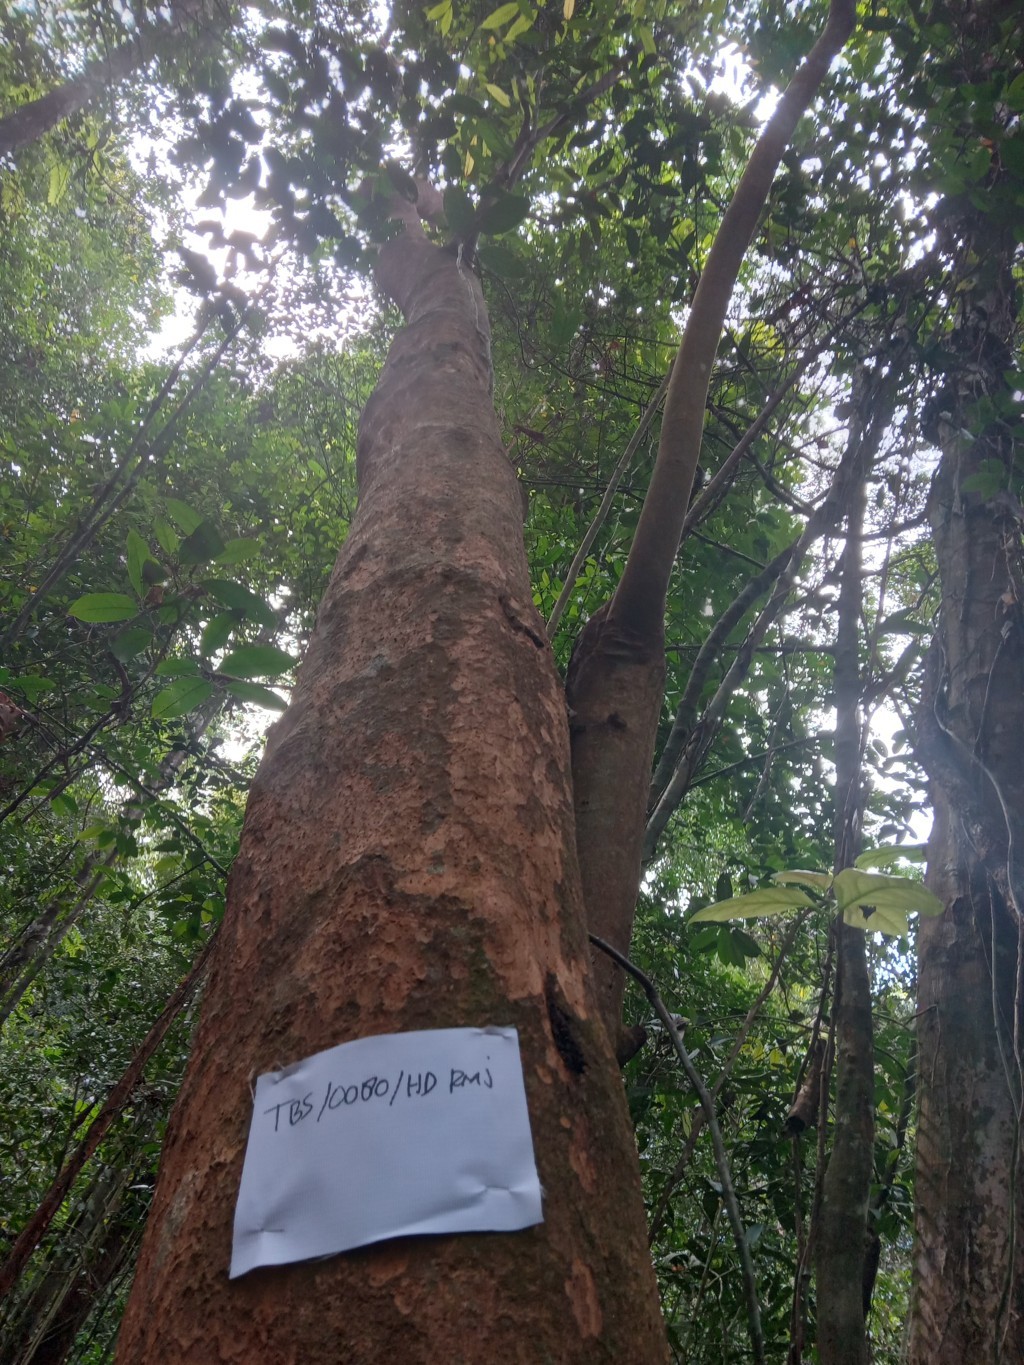 TBS/0080/HD RMJ